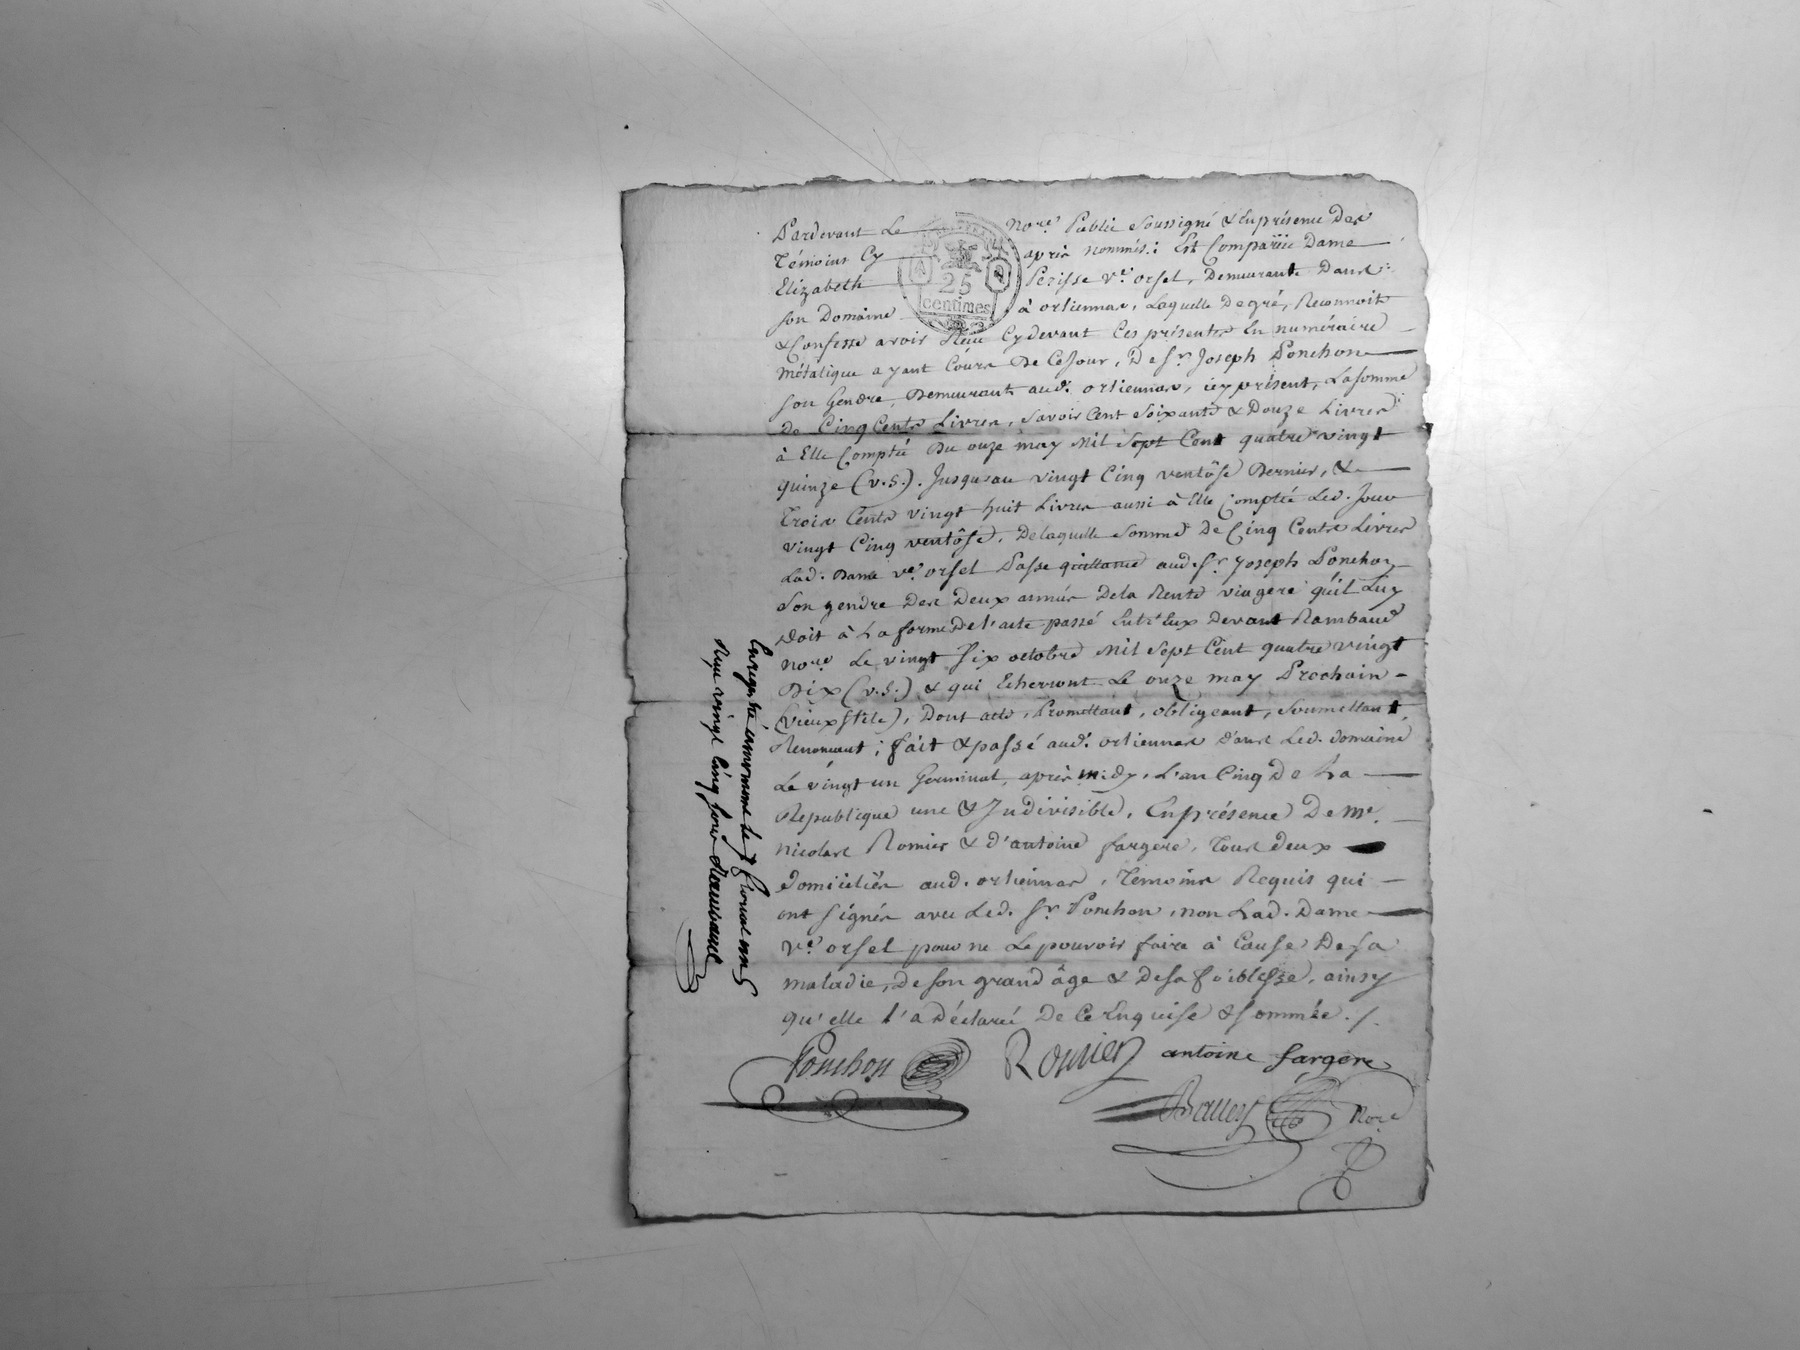 Pardevant Le Nore. Public soussigné & En présence Des
Témoins Cy après nommés: Est Comparüe Dame
Elizabeth Perisse Ve. orsel, Demeurante Dans
son Domaine à orliennas, Laquelle De gré, Reconnoit
& Confesse avoir Reçu Cydevant Ces présentes En numéraire
Métalique ayant Cours De Ce Jour, De Sr. Joseph Ponchon
son Gendre, Demeurant aud. orliennas, icy présent, La somme
De Cinq Cents Livres, savoir Cent soixante & Douze Livres
à Elle Comptée Du onze may Mil Sept Cent quatre vingt
quinze (v.s.). Jusqu'au vingt Cinq ventôse Dernier, &
Trois Cents vingt huit Livres aussi à Elle Comptée Led. Jour
vingt Cinq ventôse, De laquelle somme De Cinq Cents Livres
Lad. Dame ve. orsel Passe quittance aud. Sr. Joseph Ponchon
son gendre Des Deux années De la Rente viagere qu'il Luy
Doit à La forme De l'acte passé Entr'Eux Devant Rambaud
nore. Le vingt Six octobre Mil Sept Cent quatre vingt
Dix (v.s.) & qui Echeront Le onze may Prochain
(vieux stile), Dont acte, Promettant, obligeant, soumettant,
Renoncant; fait & passé aud. orliennas Dans Led. domaine
Le vingt un Germinal, après midy, L'an Cinq De La
République une & Indivisible, En présence De Me.
Nicolas Romier & d'antoine fargere, Tous deux
Domiciliés aud. orliennas, Temoins Requis qui
ont signés avec Led. Sr. Ponchon, non Lad. Dame
Ve. orsel pour ne Le pouvoir faire à Cause De sa
maladie, De son grand âge & De sa foiblesse, ainsy
qu'elle l'a Déclaré De Ce Enquise & sommée ./.
Ponchon Romier antoine fargere
Nore
25
centimes
Reçu vingt Cinq sous